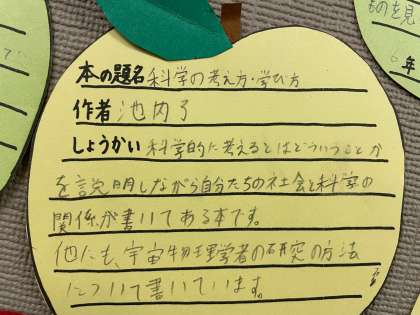 ものを見
6年
本の題名 科学の考え方・学び方
作者 池内了
しょうかい 科学的に考えるとはどういうことか
を説明しながら自分たちの社会と科学の
関係が書いてある本です。
他にも、宇宙物理学者の研究の方法
について書いています。